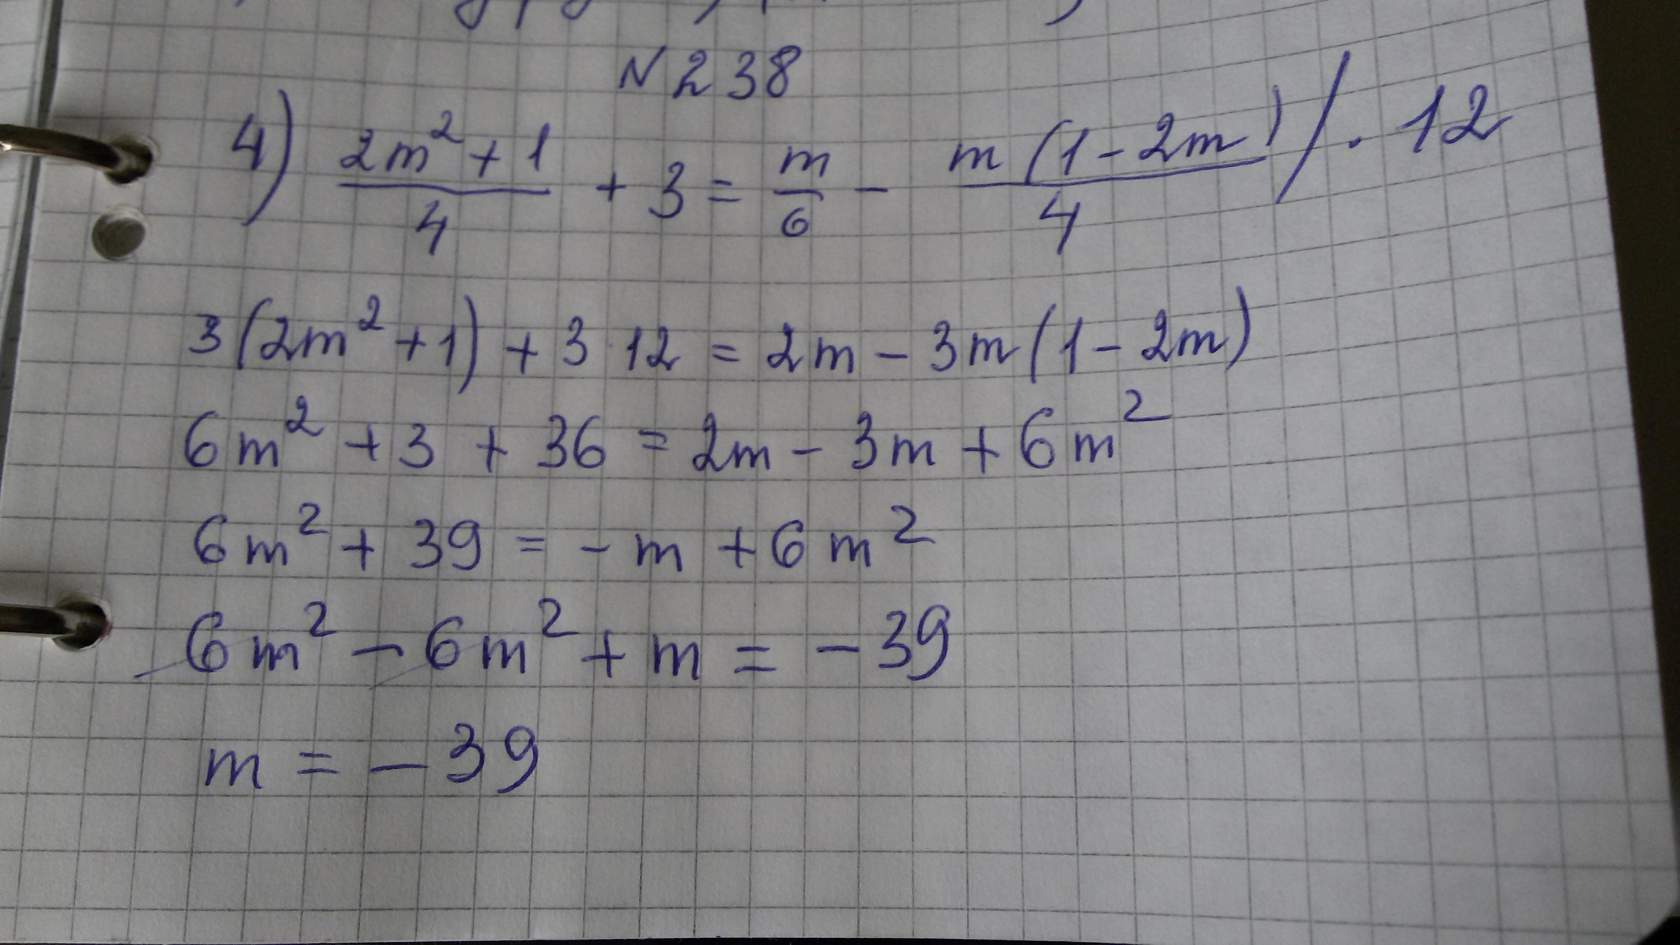 N 238
4) (2m² + 1)/4 + 3 = m/6 - m(1 - 2m)/4 / · 12
3(2m² + 1) + 3 · 12 = 2m - 3m(1 - 2m)
6m² + 3 + 36 = 2m - 3m + 6m²
6m² + 39 = -m + 6m²
6m² - 6m² + m = -39
m = -39